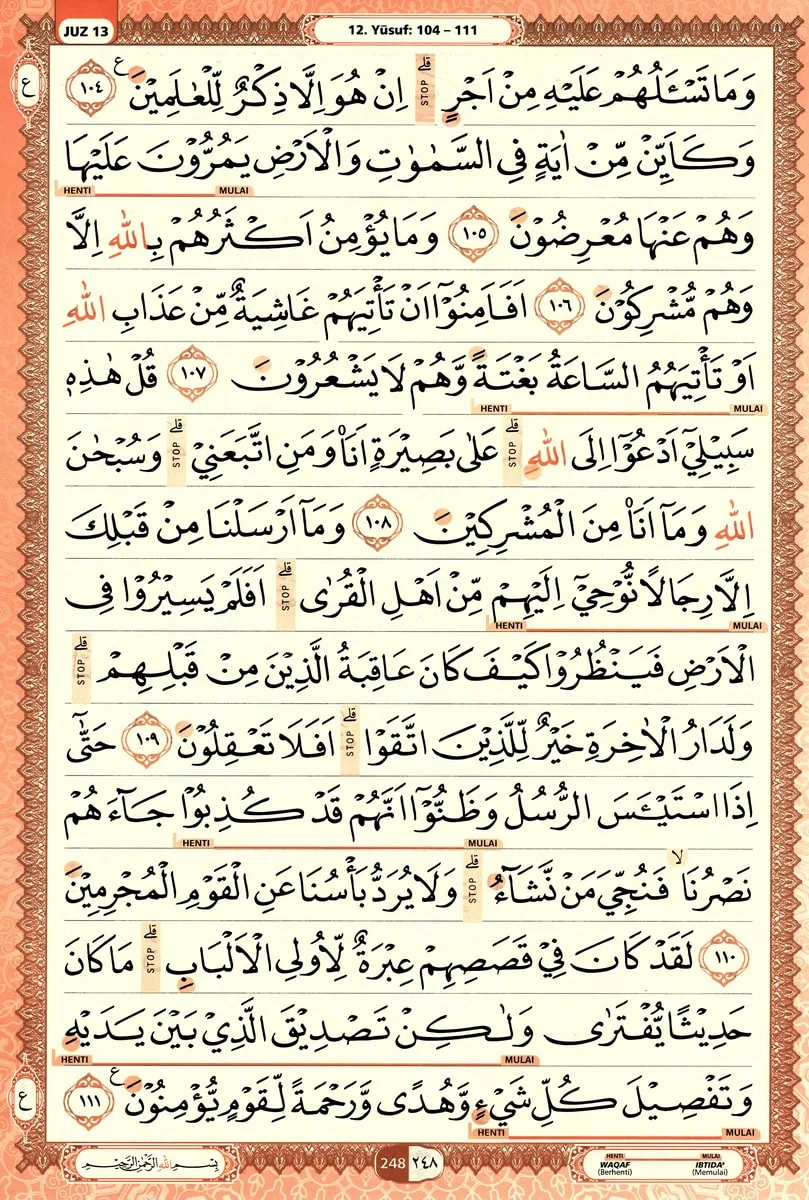 JUZ 13
12. Yūsuf: 104 – 111
وَمَا تَسْـَٔلُهُمْ عَلَيْهِ مِنْ اَجْرٍۗ اِنْ هُوَ اِلَّا ذِكْرٌ لِّلْعٰلَمِيْنَ ࣖ ١٠٤
قلى STOP
وَكَاَيِّنْ مِّنْ اٰيَةٍ فِى السَّمٰوٰتِ وَالْاَرْضِ يَمُرُّوْنَ عَلَيْهَا
HENTI MULAI
وَهُمْ عَنْهَا مُعْرِضُوْنَ ١٠٥ وَمَا يُؤْمِنُ اَكْثَرُهُمْ بِاللّٰهِ اِلَّا
وَهُمْ مُّشْرِكُوْنَ ١٠٦ اَفَاَمِنُوْٓا اَنْ تَأْتِيَهُمْ غَاشِيَةٌ مِّنْ عَذَابِ اللّٰهِ
اَوْ تَأْتِيَهُمُ السَّاعَةُ بَغْتَةً وَّهُمْ لَا يَشْعُرُوْنَ ١٠٧ قُلْ هٰذِهٖ
HENTI MULAI
سَبِيْلِيْٓ اَدْعُوْٓا اِلَى اللّٰهِ ۗعَلٰى بَصِيْرَةٍ اَنَا۠ وَمَنِ اتَّبَعَنِيْ ۗوَسُبْحٰنَ
قلى STOP قلى STOP
اللّٰهِ وَمَآ اَنَا۠ مِنَ الْمُشْرِكِيْنَ ١٠٨ وَمَآ اَرْسَلْنَا مِنْ قَبْلِكَ
اِلَّا رِجَالًا نُّوْحِيْٓ اِلَيْهِمْ مِّنْ اَهْلِ الْقُرٰىۗ اَفَلَمْ يَسِيْرُوْا فِى
قلى STOP HENTI MULAI
الْاَرْضِ فَيَنْظُرُوْا كَيْفَ كَانَ عَاقِبَةُ الَّذِيْنَ مِنْ قَبْلِهِمْۗ
قلى STOP
وَلَدَارُ الْاٰخِرَةِ خَيْرٌ لِّلَّذِيْنَ اتَّقَوْاۗ اَفَلَا تَعْقِلُوْنَ ١٠٩ حَتّٰٓى
قلى STOP
اِذَا اسْتَيْـَٔسَ الرُّسُلُ وَظَنُّوْٓا اَنَّهُمْ قَدْ كُذِبُوْا جَاۤءَهُمْ
HENTI MULAI
نَصْرُنَاۙ فَنُجِّيَ مَنْ نَّشَاۤءُ ۗوَلَا يُرَدُّ بَأْسُنَا عَنِ الْقَوْمِ الْمُجْرِمِيْنَ
قلى STOP
١١٠ لَقَدْ كَانَ فِيْ قَصَصِهِمْ عِبْرَةٌ لِّاُولِى الْاَلْبَابِۗ مَا كَانَ
قلى STOP
حَدِيْثًا يُّفْتَرٰى وَلٰكِنْ تَصْدِيْقَ الَّذِيْ بَيْنَ يَدَيْهِ
HENTI MULAI
وَتَفْصِيْلَ كُلِّ شَيْءٍ وَّهُدًى وَّرَحْمَةً لِّقَوْمٍ يُّؤْمِنُوْنَ ࣖ ١١١
HENTI MULAI
ع
ع
بِسْمِ اللّٰهِ الرَّحْمٰنِ الرَّحِيْمِ
248 ٢٤٨
HENTI MULAI
WAQAF IBTIDA'
(Berhenti) (Memulai)